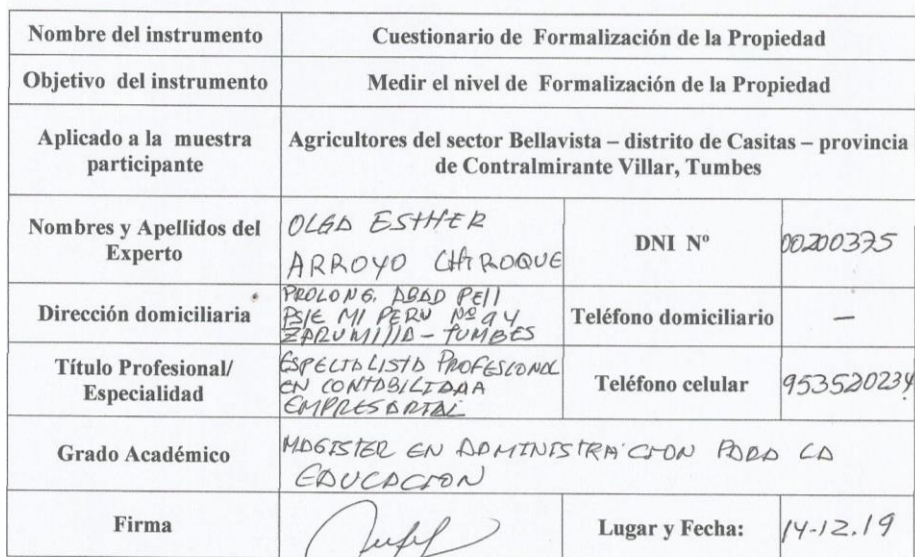 Nombre del instrumento
Cuestionario de Formalización de la Propiedad
Objetivo del instrumento
Medir el nivel de Formalización de la Propiedad
Aplicado a la muestra
participante
Agricultores del sector Bellavista – distrito de Casitas – provincia
de Contralmirante Villar, Tumbes
Nombres y Apellidos del
Experto
OLGA ESTHER
ARROYO CHIROQUE
DNI Nº
00200375
Dirección domiciliaria
PROLONG. ABAD
PSJE MI PERU Nº 94
ZARUMILLA - TUMBES
Teléfono domiciliario
—
Título Profesional/
Especialidad
ESPECIALISTA PROFESIONAL
EN CONTABILIDAD
EMPRESARIAL
Teléfono celular
953520234
Grado Académico
MAGISTER EN ADMINISTRACION PARA LA
EDUCACION
Firma
Lugar y Fecha:
14-12.19